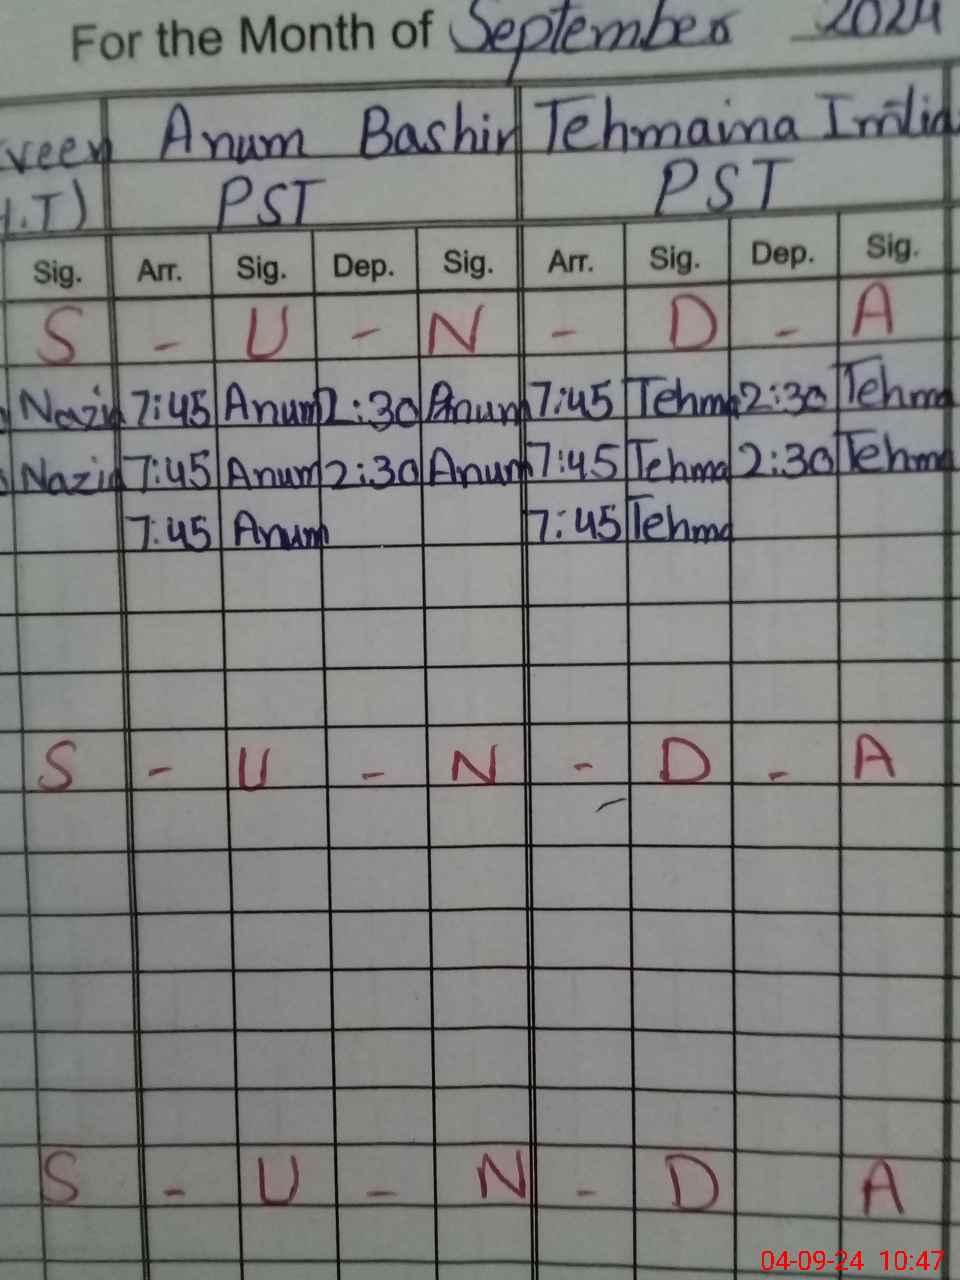 For the Month of September 2024
veen Anum Bashir Tehmaina Imtia
H.T) PST PST
Sig. Arr. Sig. Dep. Sig. Arr. Sig. Dep. Sig.
S - U - N - D - A
Nazi 7:45 Anum 2:30 Anum 7:45 Tehma 2:30 Tehma
Nazi 7:45 Anum 2:30 Anum 7:45 Tehma 2:30 Tehma
7:45 Anum 7:45 Tehma
S - U - N - D - A
S - U - N - D A
04-09-24 10:47